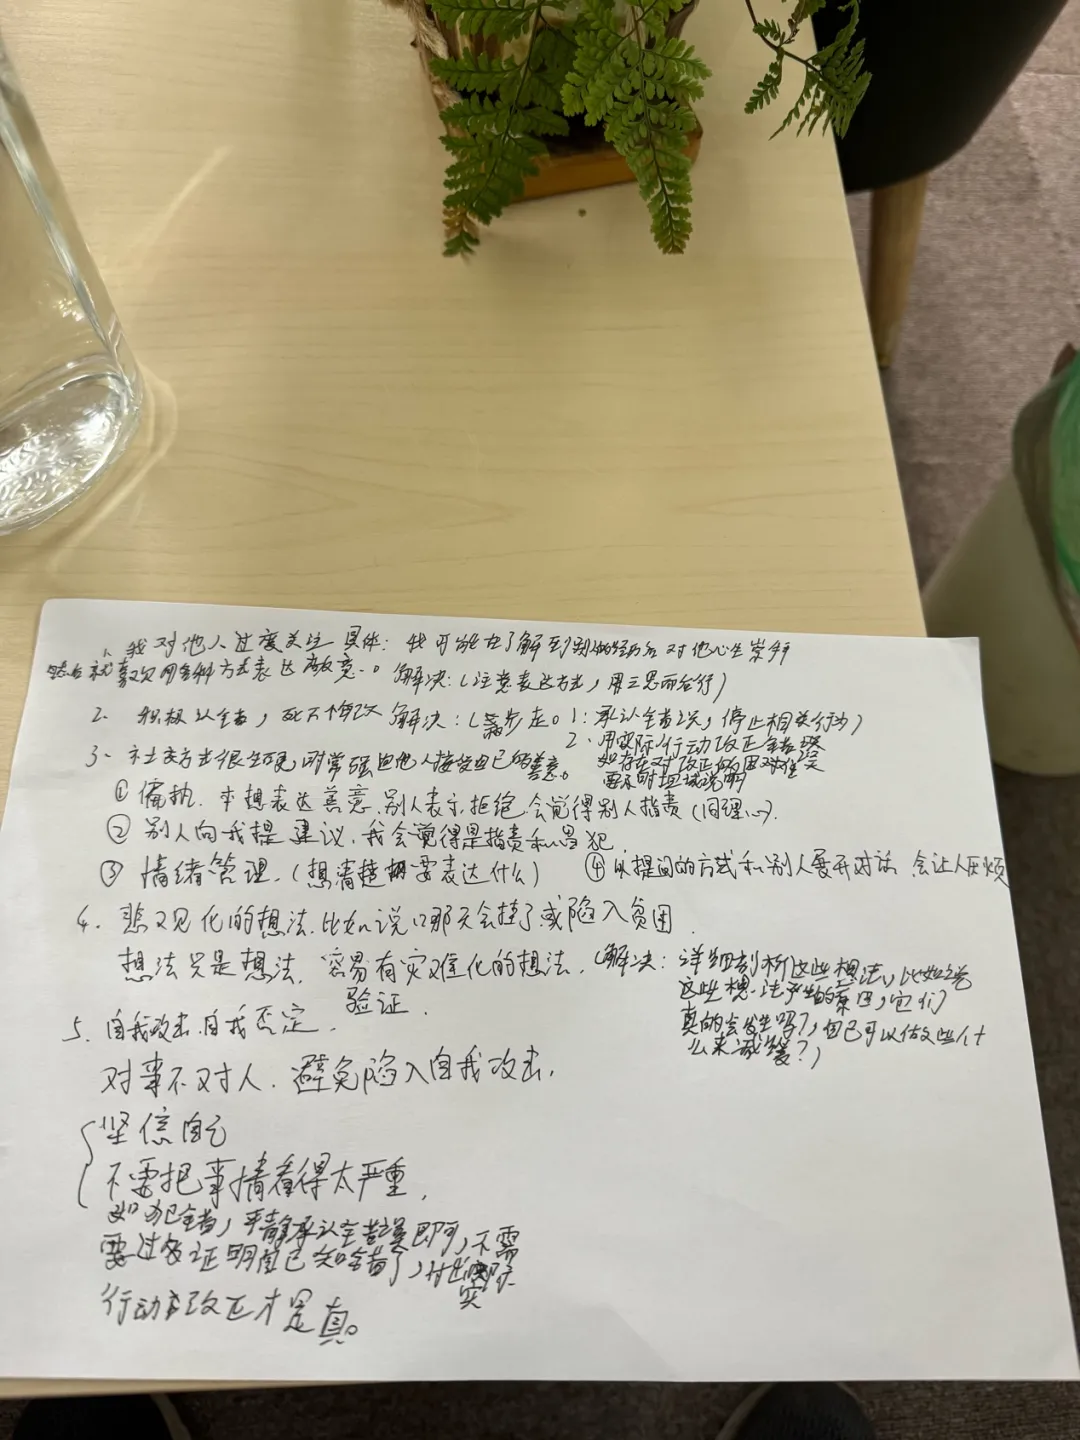 1、我对他人过度关注 具体：我可能在了解到别人的经历后对他心生崇拜
然后就喜欢用各种方式表达敬意。解决：(注意表达方式，用三思而后行)
2、积极认错，死不悔改 解决：(两步走。1：承认错误，停止相关行为)
2、用实际行动改正错误
如存在对改正的困难
要及时坦诚说明
3、社交方式很生硬，时常强迫他人接受自己的善意。
①偏执。本想表达善意，别人表示拒绝，会觉得别人指责(同理心)。
②别人向我提建议，我会觉得是指责和冒犯
③情绪管理。(想清楚要表达什么) ④以提问的方式和别人展开对话，会让人厌烦
4、悲观化的想法，比如说哪天会挂了或陷入贫困
想法只是想法，容易有灾难化的想法，(解决：详细剖析这些想法，比如说
验证。
这些想法产生的原因，它们
真的会发生吗？，自己可以做些什
么来减缓？)
5、自我攻击，自我否定。
对事不对人，避免陷入自我攻击，
坚信自己
不要把事情看得太严重，
如犯错，平静承认错误即可，不需
要过多证明自己知错了，付出实际
行动改正才是真。